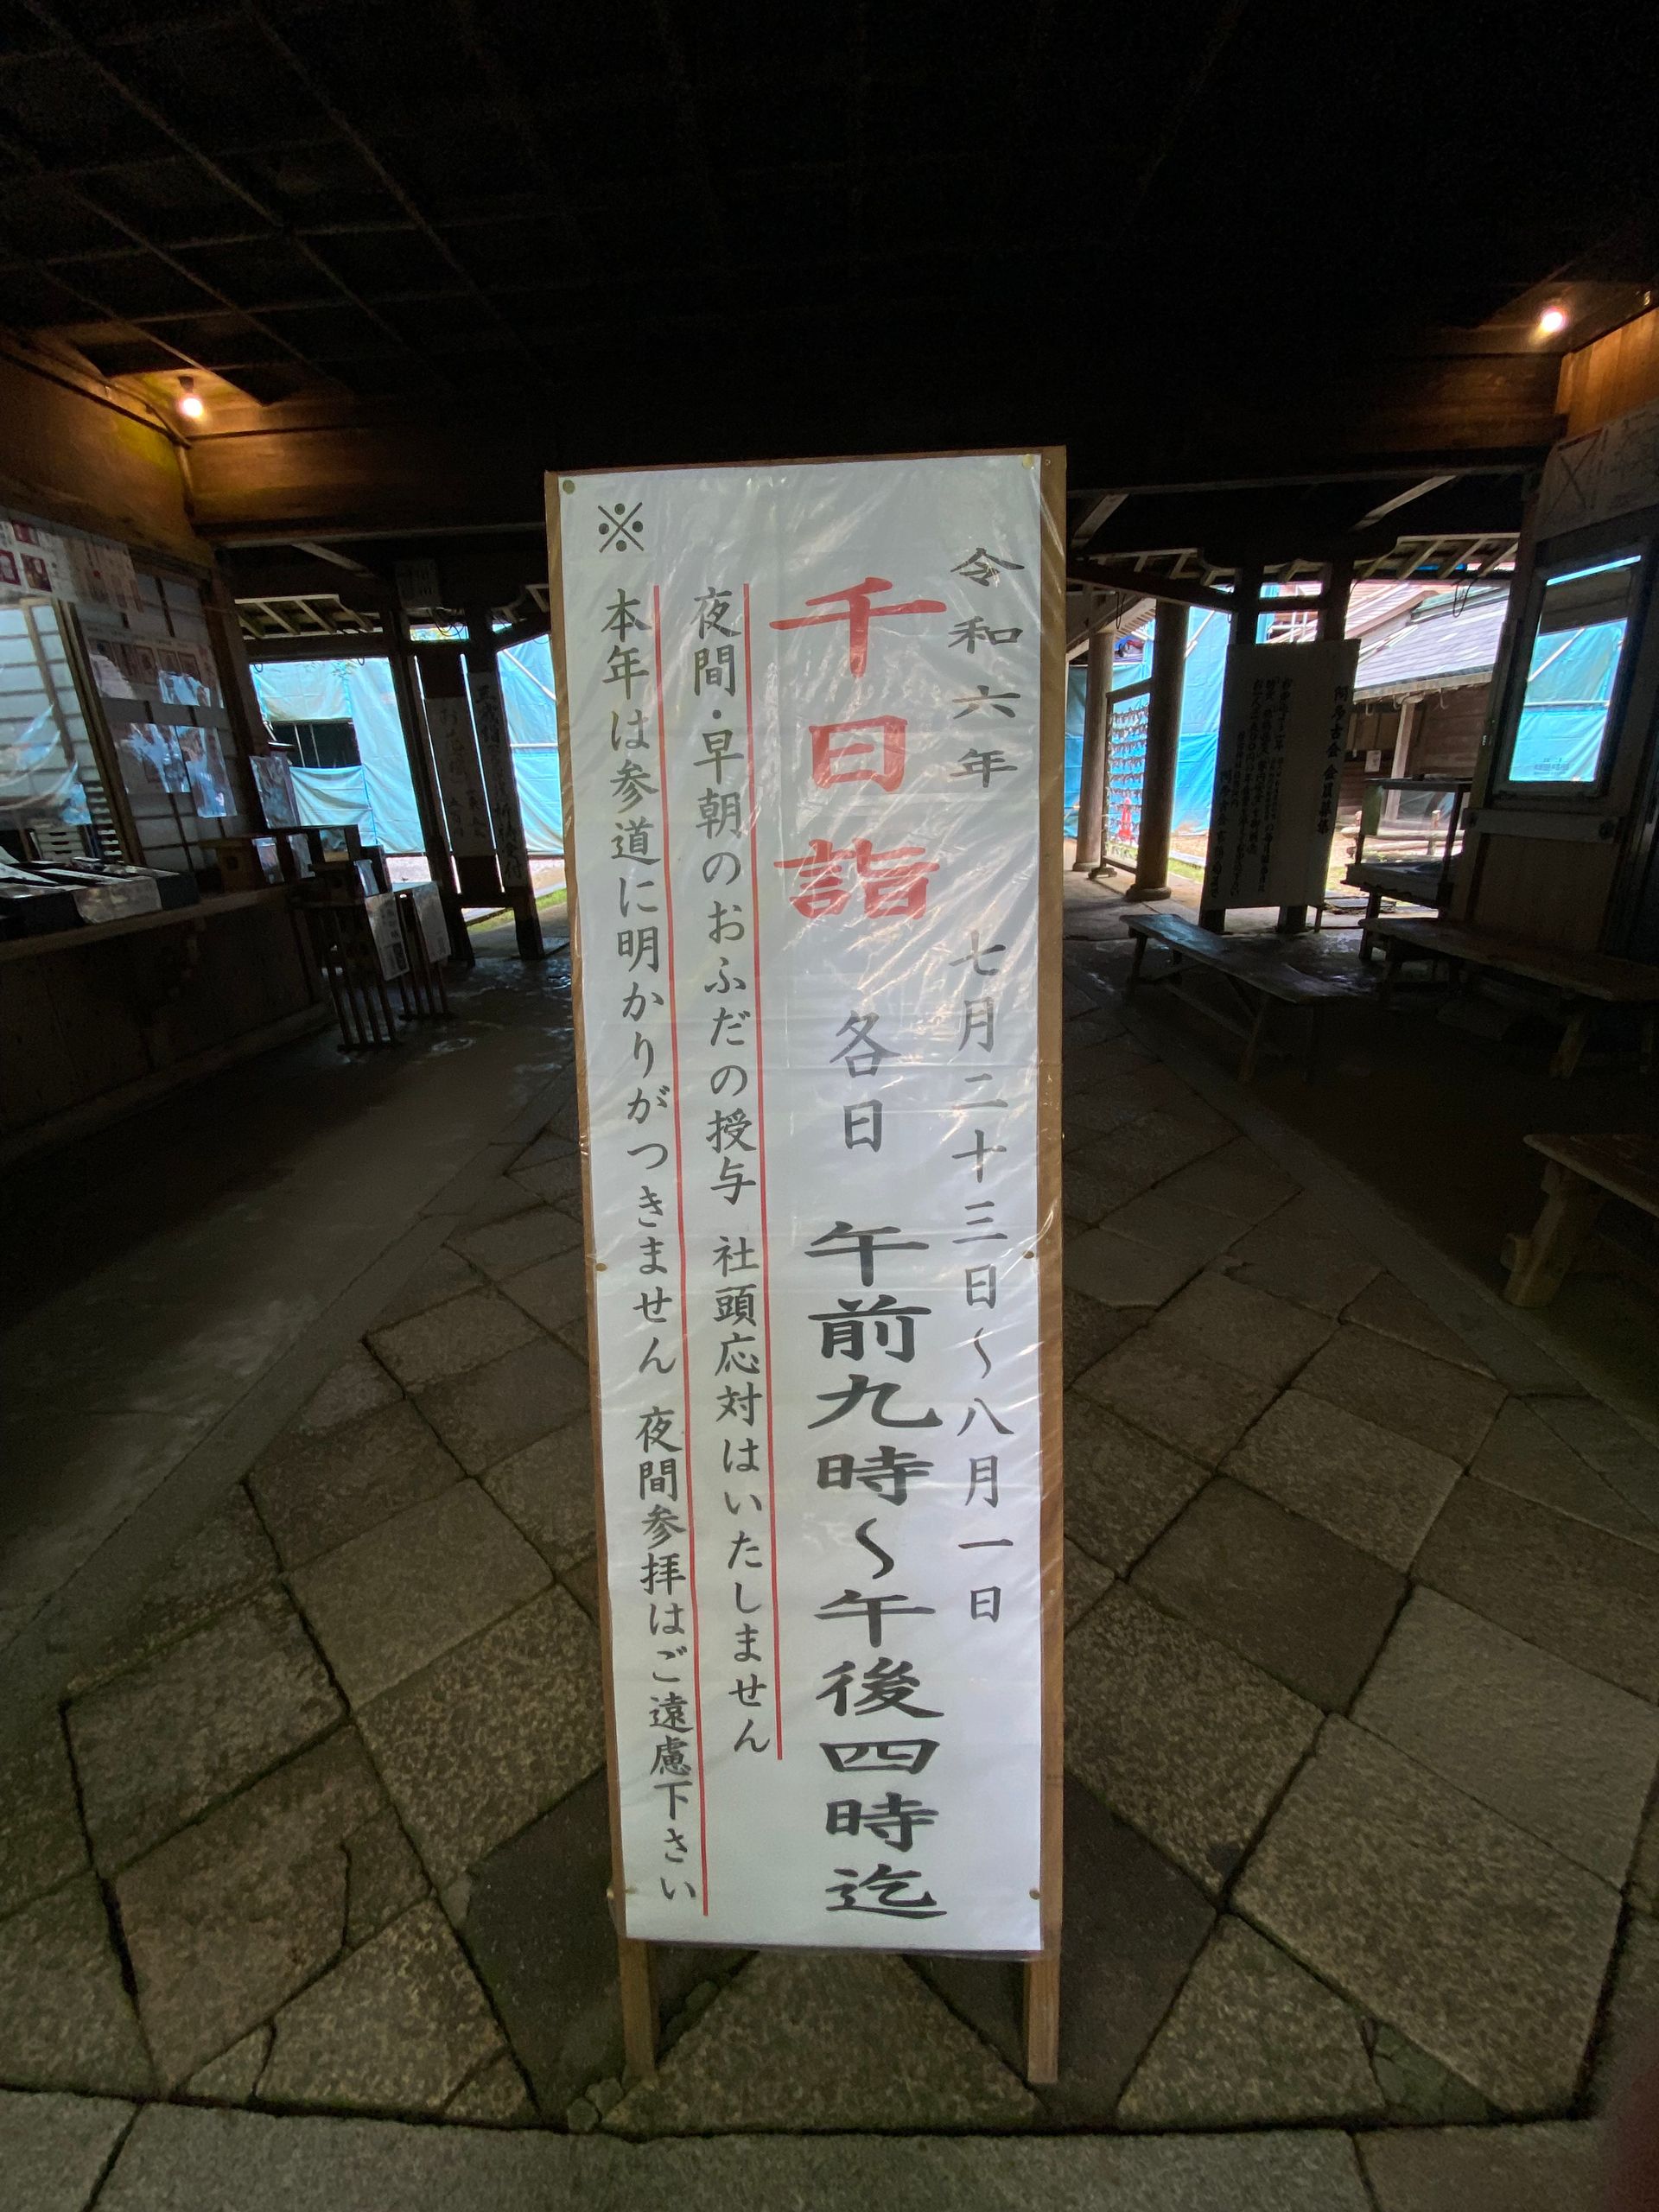 令和六年 七月二十三日～八月一日
千日詣 各日 午前九時～午後四時迄
夜間・早朝のおふだの授与 社頭応対はいたしません
※ 本年は参道に明かりがつきません 夜間参拝はご遠慮下さい